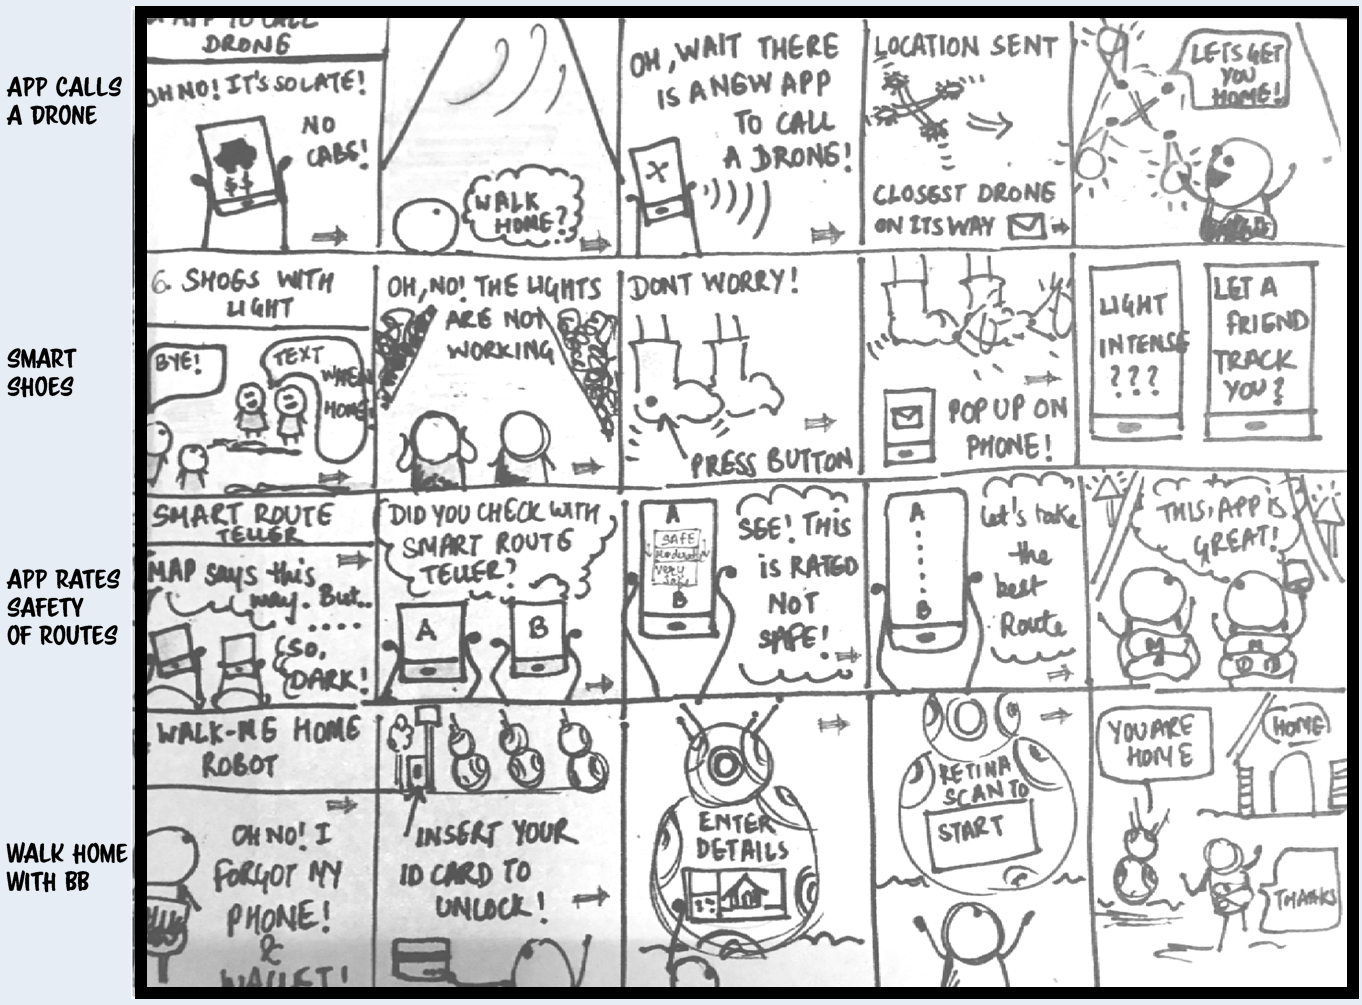 APP CALLS
A DRONE
APP TO CALL
DRONE
OH NO! IT'S SO LATE!
NO
CABS!
$$
WALK
HOME?
OH, WAIT THERE
IS A NEW APP
TO CALL
A DRONE!
X
LOCATION SENT
CLOSEST DRONE
ON ITS WAY
LETS GET
YOU
HOME!
SMART
SHOES
6. SHOES WITH
LIGHT
BYE!
TEXT
WHEN
HOME!
OH, NO! THE LIGHTS
ARE NOT
WORKING
DONT WORRY!
PRESS BUTTON
POP UP ON
PHONE!
LIGHT
INTENSE
???
LET A
FRIEND
TRACK
YOU?
APP RATES
SAFETY
OF ROUTES
SMART ROUTE
TELLER
MAP says this
way. But..
....
SO,
DARK!
DID YOU CHECK WITH
SMART ROUTE
TELLER?
A
B
A
SAFE
moderate
very
safe
B
SEE! THIS
is RATED
NOT
SAFE!
A
B
Let's take
the
best
Route
THIS, APP IS
GREAT!
M
M
WALK HOME
WITH BB
WALK-ME HOME
ROBOT
OH NO! I
FORGOT MY
PHONE!
&
WALLET!
INSERT YOUR
ID CARD TO
UNLOCK!
ENTER
DETAILS
RETINA
SCAN TO
START
YOU ARE
HOME
HOME!
THANKS